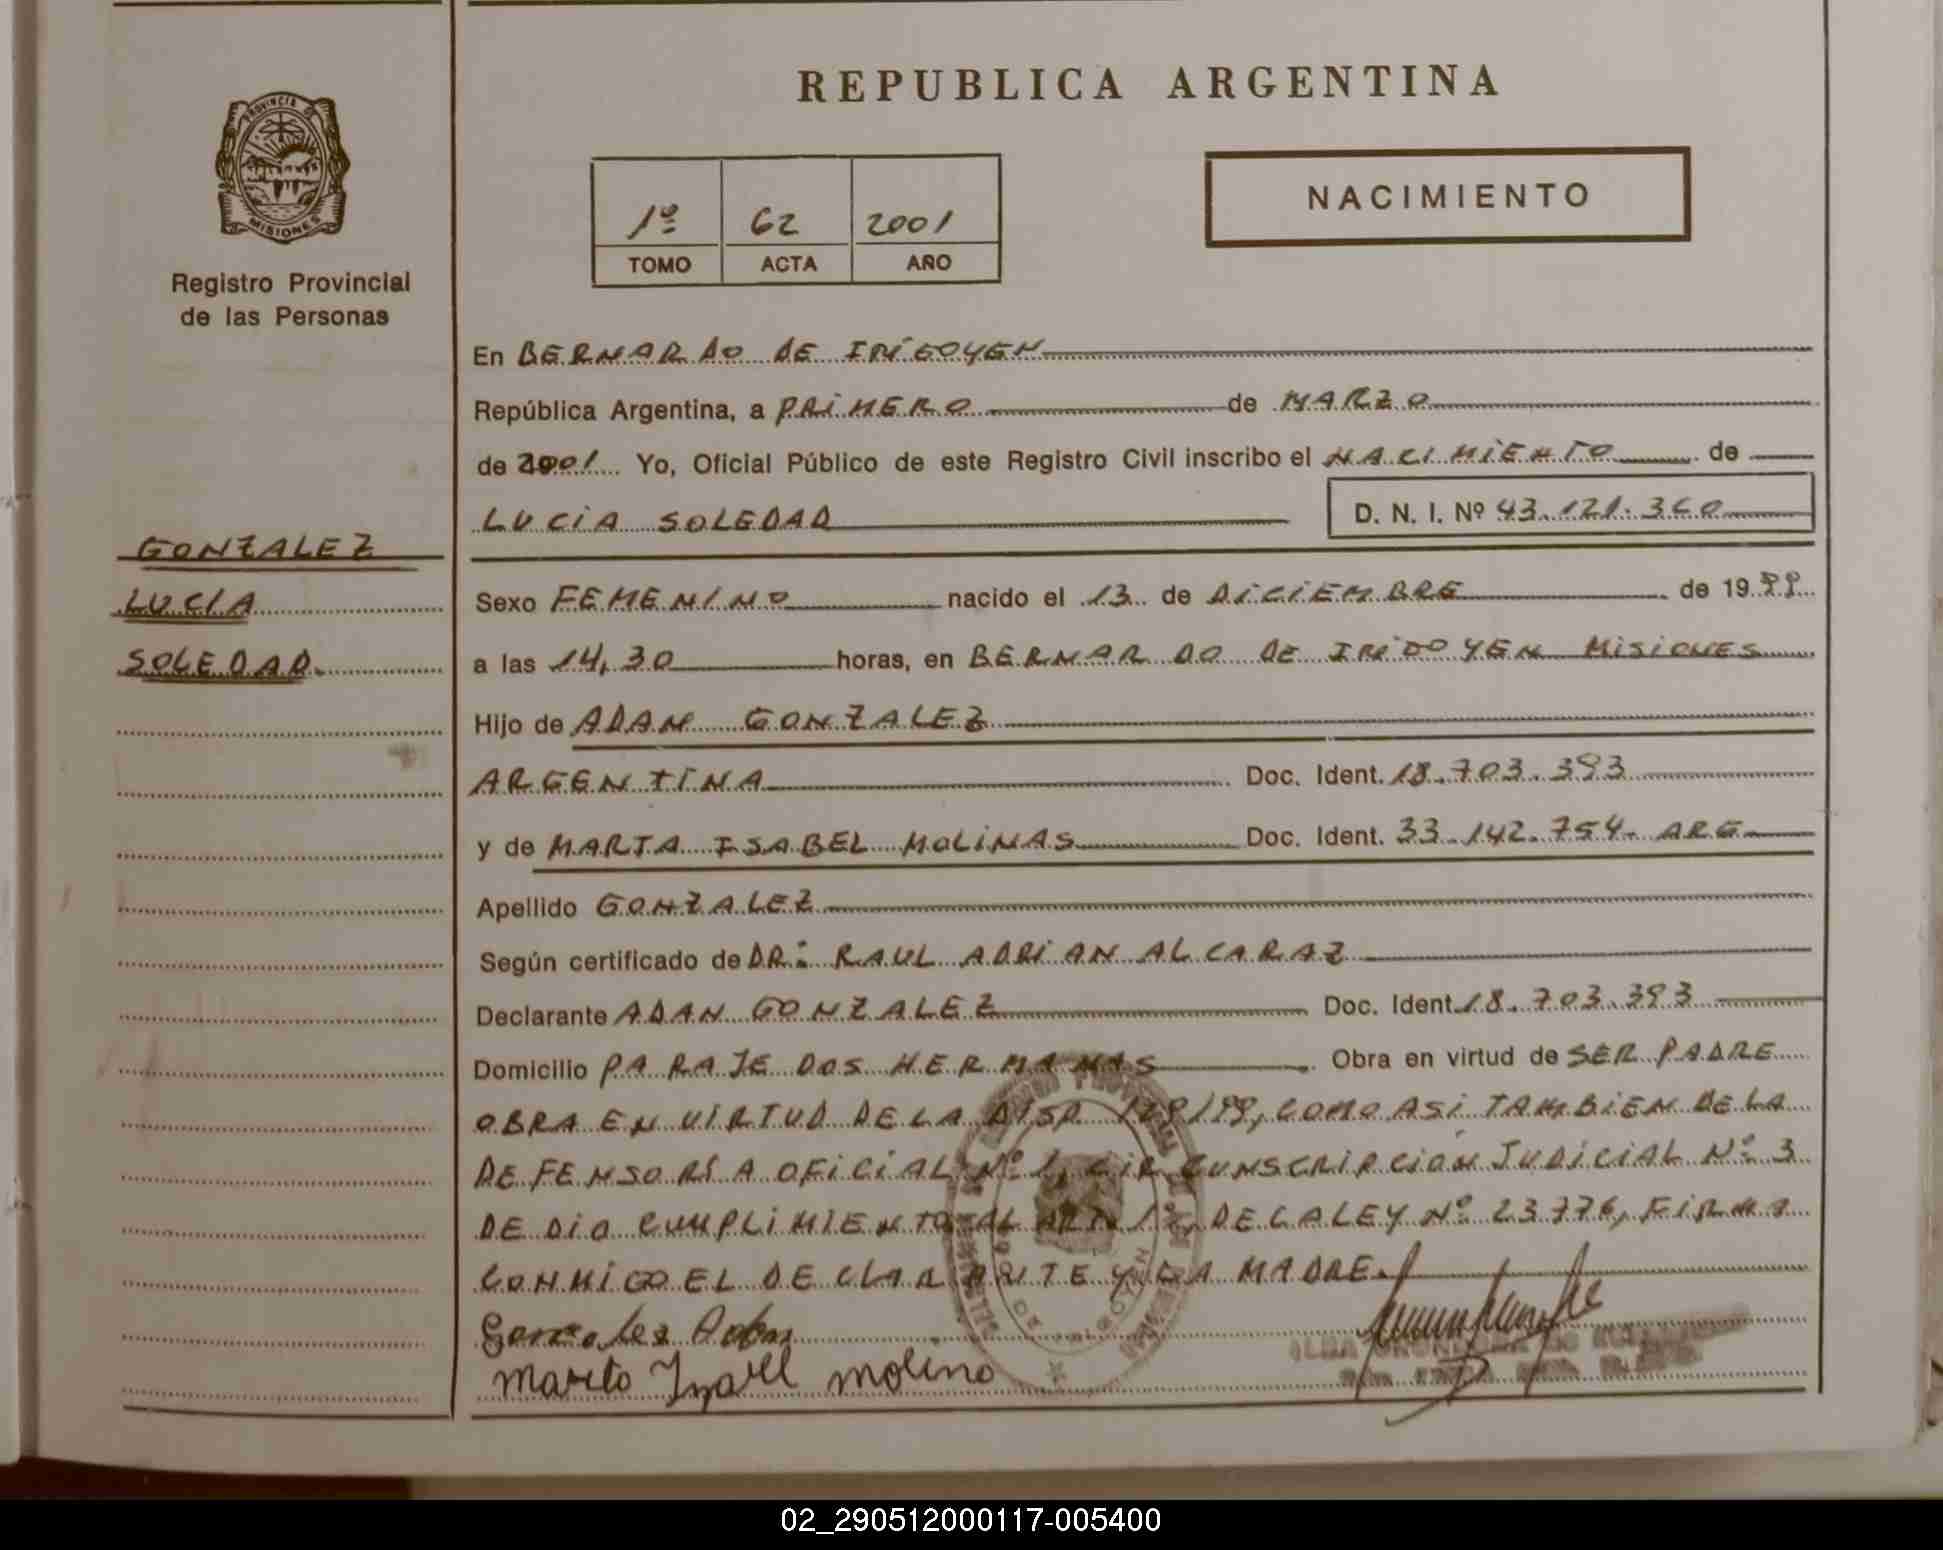 REPUBLICA ARGENTINA
PROVINCIA DE
MISIONES
Registro Provincial
de las Personas
1º 62 2001
TOMO ACTA AÑO
NACIMIENTO
En BERNARDO DE IRIGOYEN
República Argentina, a PRIMERO de MARZO
de 2001 Yo, Oficial Público de este Registro Civil inscribo el NACIMIENTO de
LUCIA SOLEDAD D. N. I. Nº 43.121.360
GONZALEZ
LUCIA
SOLEDAD.
Sexo FEMENINO nacido el 13 de DICIEMBRE de 1999
a las 14,30 horas, en BERNARDO DE IRIDOYEN MISIONES
Hijo de ADAN GONZALEZ
ARGENTINA Doc. Ident. 18.703.393
y de MARTA ISABEL MOLINAS Doc. Ident. 33.142.754- ARG
Apellido GONZALEZ
Según certificado de DR: RAUL ADRIAN ALCARAZ
Declarante ADAN GONZALEZ Doc. Ident. 18.703.393
Domicilio PARAJE DOS HERMANAS Obra en virtud de SER PADRE
OBRA EN VIRTUD DE LA DISP. 129/99, COMO ASI TAMBIEN DE LA
DEFENSORÍA OFICIAL Nº 1, CIRCUNSCRIPCION JUDICIAL Nº 3
DE DIO CUMPLIMIENTO AL ART. 1º, DE LA LEY Nº 23776, FIRMA
CONMIGO EL DECLARANTE Y LA MADRE.
Gonzalez Adan
Marta Izabel molina
02_290512000117-005400